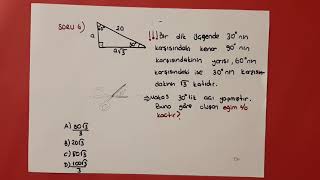 SORU 6)
20
a
30°
a√3
↓↓↓ Bir dik üçgende 30°'nin
karşısındaki kenar 90°'nin
karşısındakinin yarısı, 60°'nin
karşısındaki ise 30°'nin karşısın-
dakinin √3 katıdır.
⇒ Makas 30°'lik açı yapmıştır.
Buna göre oluşan eğim %
kaçtır?
A) 80√3/3
B) 20√3
C) 50√3
D) 100√3/3